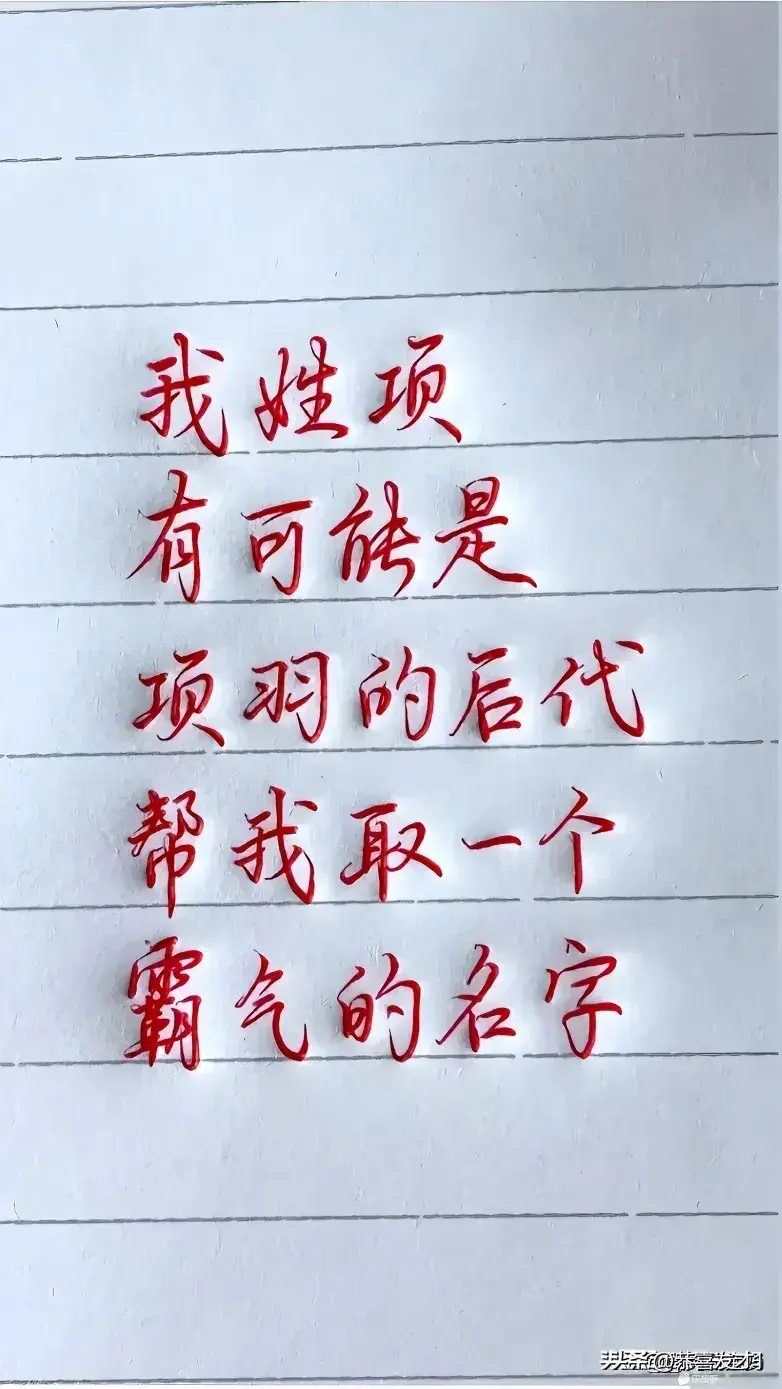 我姓项
有可能是
项羽的后代
帮我取一个
霸气的名字
头条@恭喜发财